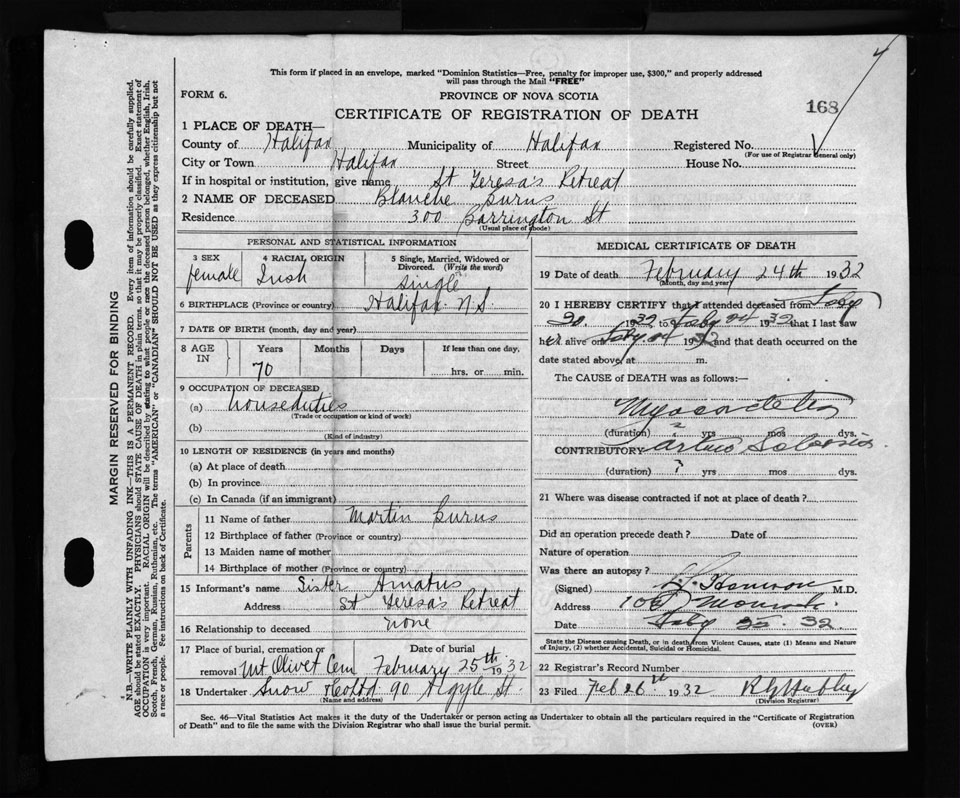 4
This form if placed in an envelope, marked "Dominion Statistics—Free, penalty for improper use, $300," and properly addressed
will pass through the Mail "FREE"
FORM 6.
PROVINCE OF NOVA SCOTIA
168
CERTIFICATE OF REGISTRATION OF DEATH
1 PLACE OF DEATH—
County of Halifax Municipality of Halifax Registered No.
(For use of Registrar General only)
City or Town Halifax Street House No.
If in hospital or institution, give name St Teresa's Retreat
2 NAME OF DECEASED Blanche Burns
Residence 300 Barrington St
(Usual place of abode)
PERSONAL AND STATISTICAL INFORMATION
3 SEX 4 RACIAL ORIGIN 5 Single, Married, Widowed or
Divorced. (Write the word)
female Irish Single
6 BIRTHPLACE (Province or country) Halifax N.S.
7 DATE OF BIRTH (month, day and year)
8 AGE IN Years Months Days If less than one day,
70 hrs. or min.
9 OCCUPATION OF DECEASED
(a) houseduties
(Trade or occupation or kind of work)
(b)
(Kind of industry)
10 LENGTH OF RESIDENCE (in years and months)
(a) At place of death
(b) In province
(c) In Canada (if an immigrant)
Parents
11 Name of father Martin Burns
12 Birthplace of father (Province or country)
13 Maiden name of mother
14 Birthplace of mother (Province or country)
15 Informant's name Sister Amatus
Address St Teresa's Retreat
16 Relationship to deceased none
17 Place of burial, cremation or Date of burial
removal Mt Olivet Cem February 25th 1932
18 Undertaker Snow & Co Ltd 90 Argyle St.
(Name and address)
MEDICAL CERTIFICATE OF DEATH
19 Date of death February 24th 1932
(Month, day and year)
20 I HEREBY CERTIFY that I attended deceased from Feby
20. 1932 to Feby 24 1932 that I last saw
her alive on Feby. 24 1932 and that death occurred on the
date stated above, at m.
The CAUSE OF DEATH was as follows:—
Myocardetis
(duration) ? yrs mos dys.
CONTRIBUTORY
(duration) ? yrs mos dys.
21 Where was disease contracted if not at place of death?
Did an operation precede death? Date of
Nature of operation
Was there an autopsy?
(Signed) M.D.
Address 106
Date Feby 32
State the Disease causing Death, or in death from Violent Causes, state (1) Means and Nature
of Injury, (2) whether Accidental, Suicidal or Homicidal.
22 Registrar's Record Number
23 Filed Feb 26th 1932
(Division Registrar)
Sec. 46—Vital Statistics Act makes it the duty of the Undertaker or person acting as Undertaker to obtain all the particulars required in the "Certificate of Registration
of Death" and to file the same with the Division Registrar who shall issue the burial permit. (OVER)
MARGIN RESERVED FOR BINDING
N.B.—WRITE PLAINLY WITH UNFADING INK—THIS IS A PERMANENT RECORD. Every item of information should be carefully supplied.
AGE should be stated EXACTLY. PHYSICIANS should STATE CAUSE OF DEATH in plain terms, so that it may be properly classified. Exact statement of
OCCUPATION is very important. RACIAL ORIGIN will be described by stating to what people or race the deceased person belonged, whether English, Irish,
Scotch, French, German, Russian, Ruthenian, etc. The terms "AMERICAN" or "CANADIAN" SHOULD NOT BE USED as they express citizenship but not
a race or people. Fee instructions on back of Certificate.